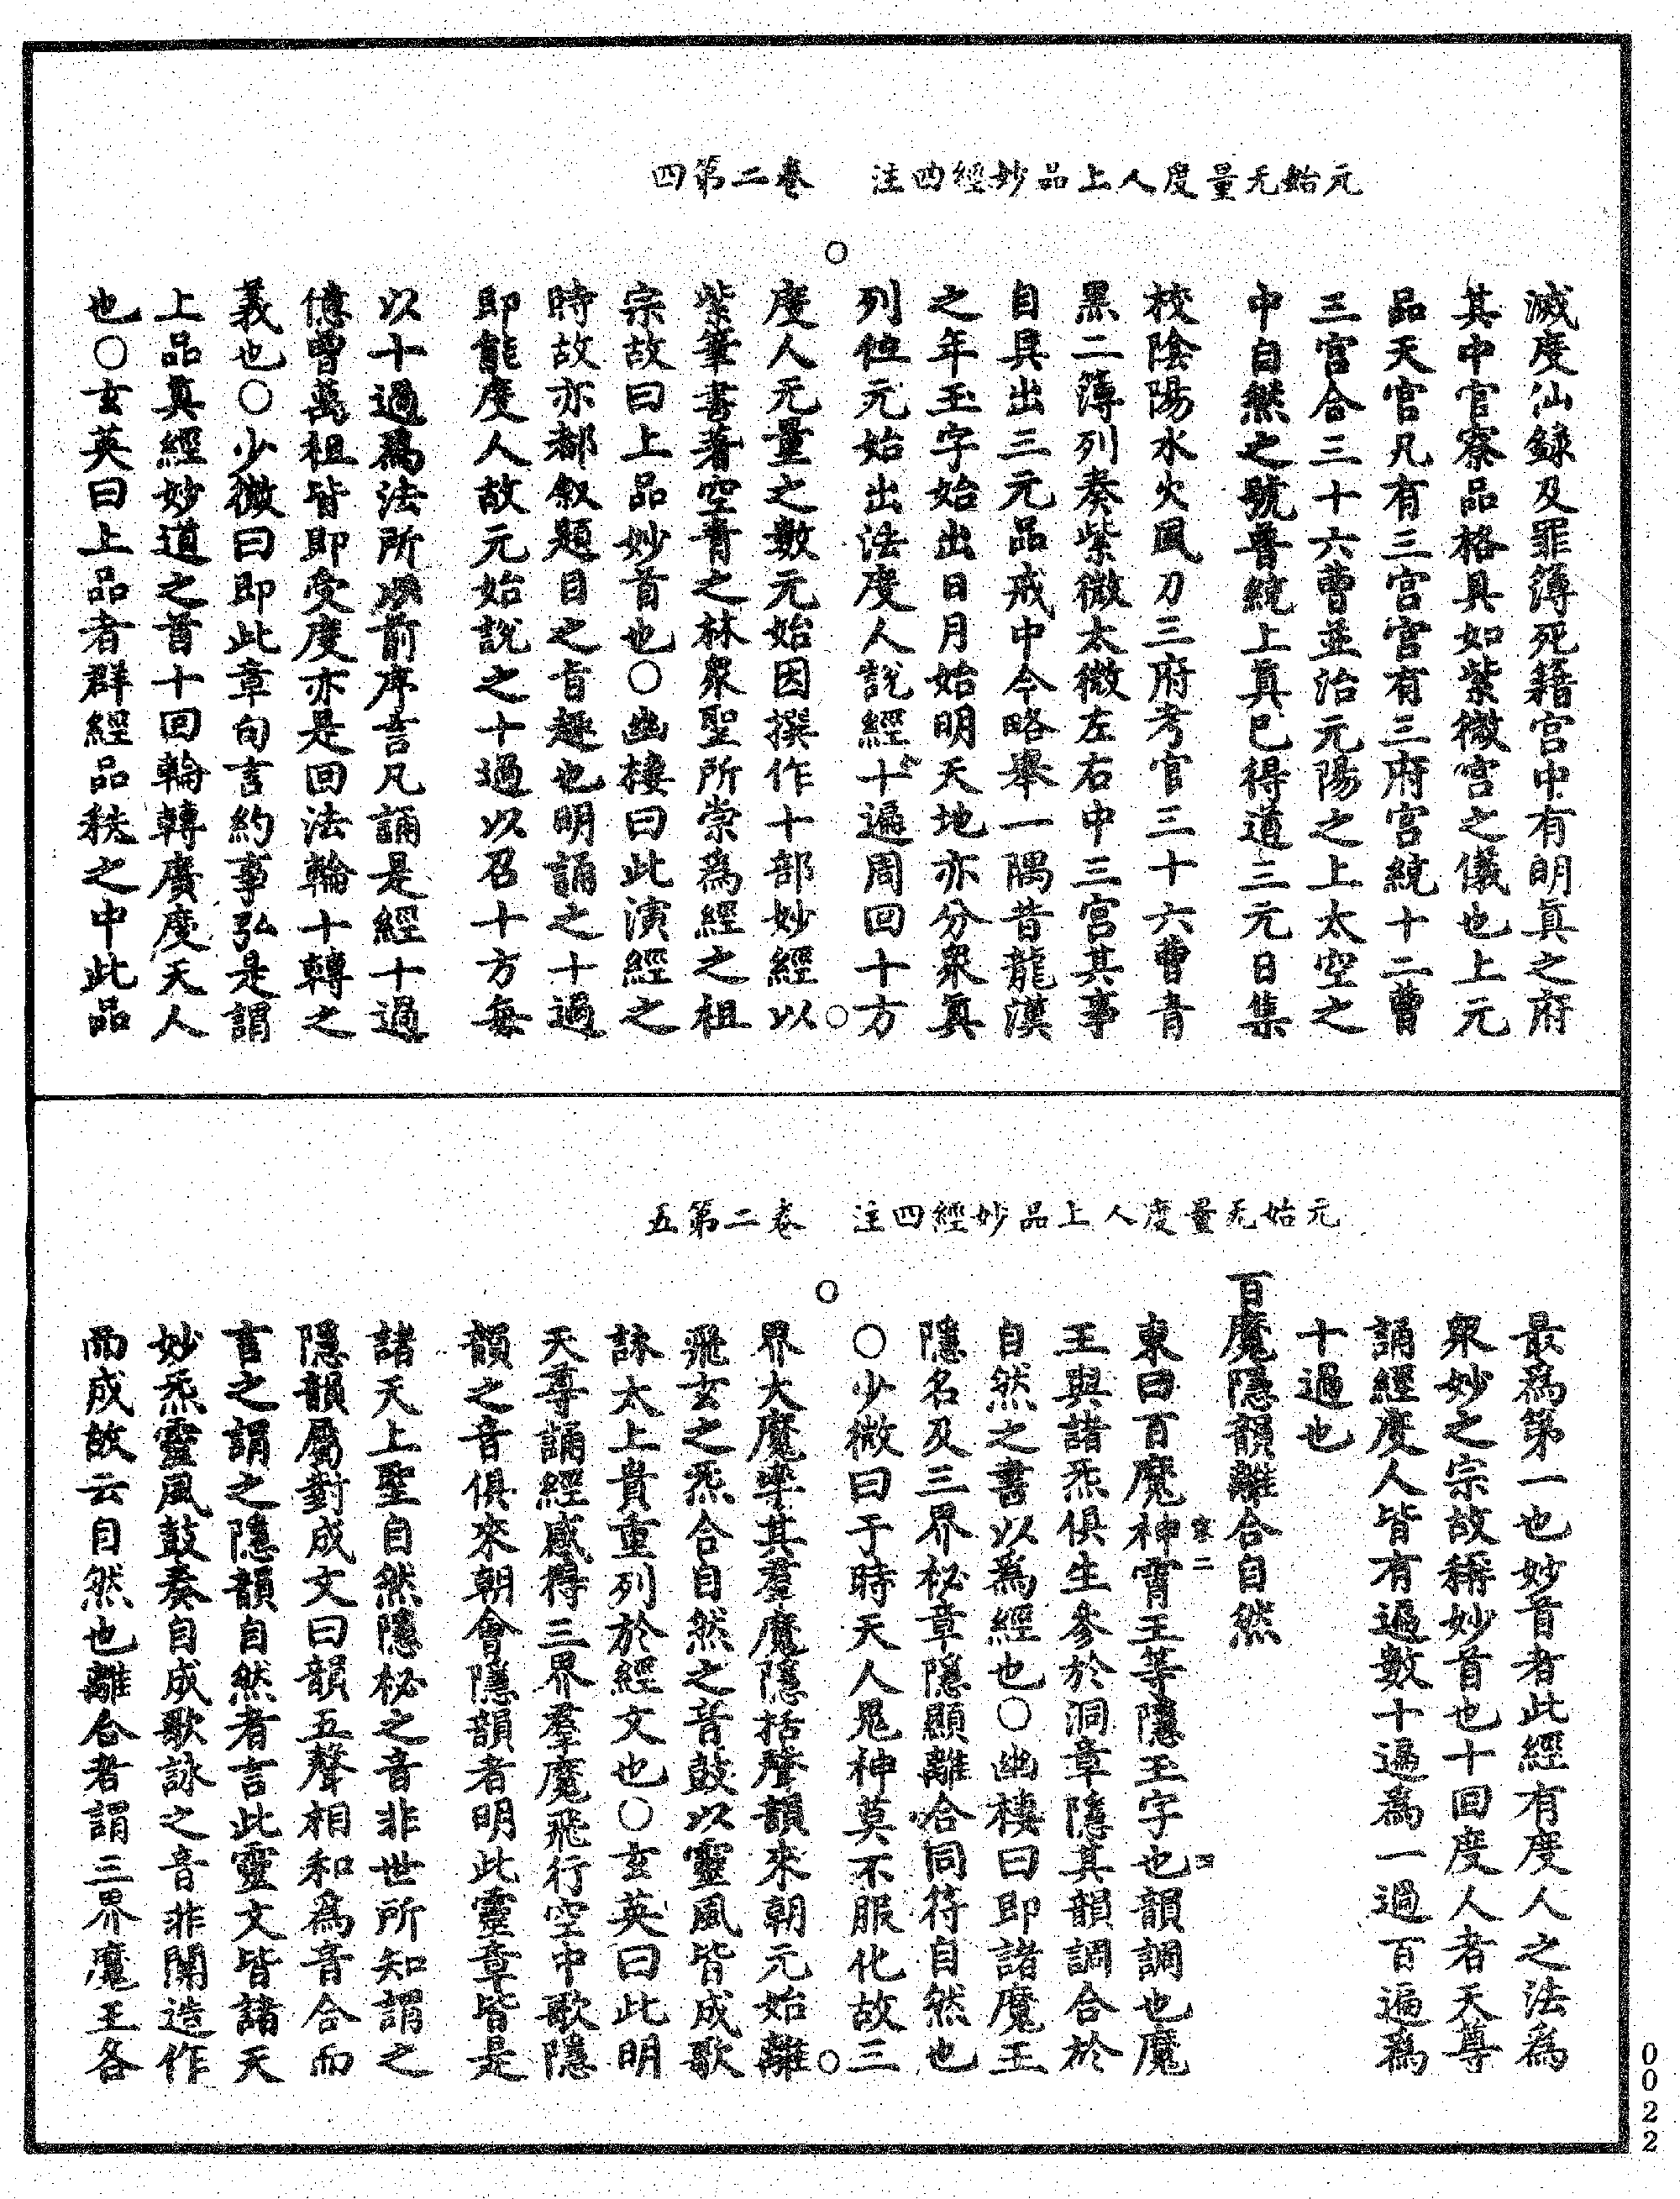 元始无量度人上品妙經四注 卷二第四
滅度仙錄及罪簿死籍宮中有明真之府
其中官寮品格具如紫微宮之儀也上元
品天官凡有三宮宮有三府宮統十二曹
三宮合三十六曹並治元陽之上太空之
中自然之號普統上真已得道三元日集
校陰陽水火風刀三府考官三十六曹青
黑二簿列奏紫微太微左右中三宮其事
自具出三元品戒中今略舉一隅昔龍漢
之年玉字始出日月始明天地亦分衆真
列位元始出法度人說經十遍周回十方
度人无量之數元始因撰作十部妙經以
紫筆書著空青之林衆聖所崇為經之祖
宗故曰上品妙首也○幽棲曰此演經之
時故亦都叙題目之旨趣也明誦之十過
即能度人故元始說之十過以召十方每
以十過為法所以前序言凡誦是經十過
億曾萬祖皆即受度亦是回法輪十轉之
義也○少微曰即此章句言約事弘是謂
上品真經妙道之首十回輪轉廣度天人
也○玄英曰上品者群經品秩之中此品
元始无量度人上品妙經四注 卷二第五
最為第一也妙首者此經有度人之法為
衆妙之宗故稱妙首也十回度人者天尊
誦經度人皆有遍數十遍為一過百遍為
十過也
百魔隱韻離合自然
東曰百魔神霄王等隱王字也韻調也魔
王與諸炁俱生參於洞章隱其韻調合於
自然之書以為經也○幽棲曰即諸魔王
隱名及三界秘章隱顯離合同符自然也
○少微曰于時天人鬼神莫不服化故三
界大魔率其羣魔隱括聲韻來朝元始離
飛玄之炁合自然之音鼓以靈風皆成歌
詠太上貴重列於經文也○玄英曰此明
天尊誦經感得三界羣魔飛行空中歌隱
韻之音俱來朝會隱韻者明此靈章皆是
諸天上聖自然隱秘之音非世所知謂之
隱韻屬對成文曰韻五聲相和為音合而
言之謂之隱韻自然者言此靈文皆諸天
妙炁靈風鼓奏自成歌詠之音非關造作
而成故云自然也離合者謂三界魔王各
0022